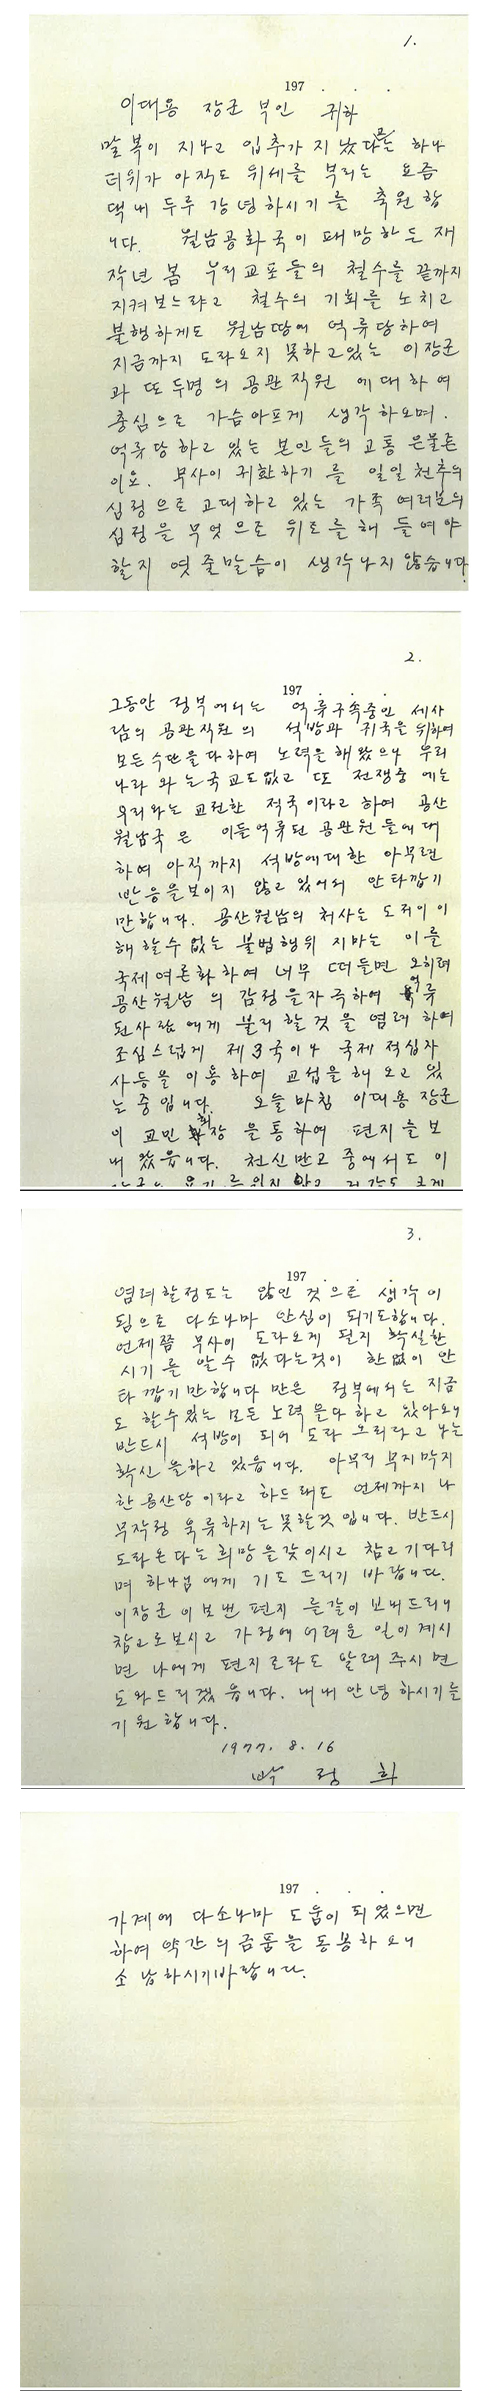 1.
197 . . .
이대용 장군 부인 귀하
말복이 지나고 입추가 지났다고는 하나
더위가 아직도 위세를 부리는 요즘
댁내 두루 강녕하시기를 축원합
니다. 월남공화국이 패망하든 재
작년 봄 우리교포들의 철수를 끝까지
지켜보느라고 철수의 기회를 노치고
불행하게도 월남땅에 억류당하여
지금까지 도라오지 못하고있는 이장군
과 또두명의 공관직원 에대하여
충심으로 가슴아프게 생각하오며.
억류당하고 있는 본인들의 고통은물론
이요. 무사이 귀환하기를 일일천추의
심정으로 고대하고 있는 가족여러분의
심정을 무엇으로 위로를해 들여야
할지 엿줄말슴이 생각나지 않습니다.
2.
197 . . .
그동안 정부에서는 억류구속중인 세사
람의 공관직원의 석방과 귀국을위하여
모든수단을다하여 노력을해왔으나 우리
나라와는국교도없고 또 전쟁중에는
우리와는교전한 적국이라고 하여 공산
월남국은 이들억류된 공관원들에대
하여 아직까지 석방에대한 아무런
반응을보이지 않고 있어서 안타깝기
만합니다. 공산월남의 처사는 도저이이
해할수없는 불법행위지마는 이를
국제여론화하여 너무 떠들면 오히려
공산월남의 감정을자극하여 억류
된사람에게 불리할것을 염려하여
조심스럽게 제3국이나 국제적십자
사등을 이용하여 교섭을해오고 있
는중입니다. 오늘마침 이대용장군
이 교민회장을통하여 편지를보
내왔읍니다. 천신만고 중에서도 이
장군은 용기를잃지않고 건강도 크게
3.
197 . . .
염려할정도는 않인것으로 생각이
됨으로 다소나마 안심이 되기도합니다.
언제쯤 무사이 도라오게 될지 확실한
시기를 알수없다는것이 한없이 안
타깝기만합니다만은 정부에서는 지금
도 할수있는 모든노력을다하고 있아오니
반드시 석방이되어 도라오리라고 나는
확신을하고 있읍니다. 아무리 무지막지
한공산당이라고 하드래도 언제까지나
무작정 억류하지는못할것입니다. 반드시
도라온다는희망을갖이시고 참고기다리
며 하나님에게 기도드리기 바랍니다.
이장군이보낸 편지를같이보내드리니
참고로보시고 가정에어려운 일이계시
면 나에게 편지로라도 알려주시면
도와드리겠읍니다. 내내안녕하시기를
기원합니다.
1977. 8. 16
박 정 희
197 . . .
가계에 다소나마 도움이 되었으면
하여 약간의금품을 동봉하오니
소납하시기바랍니다.